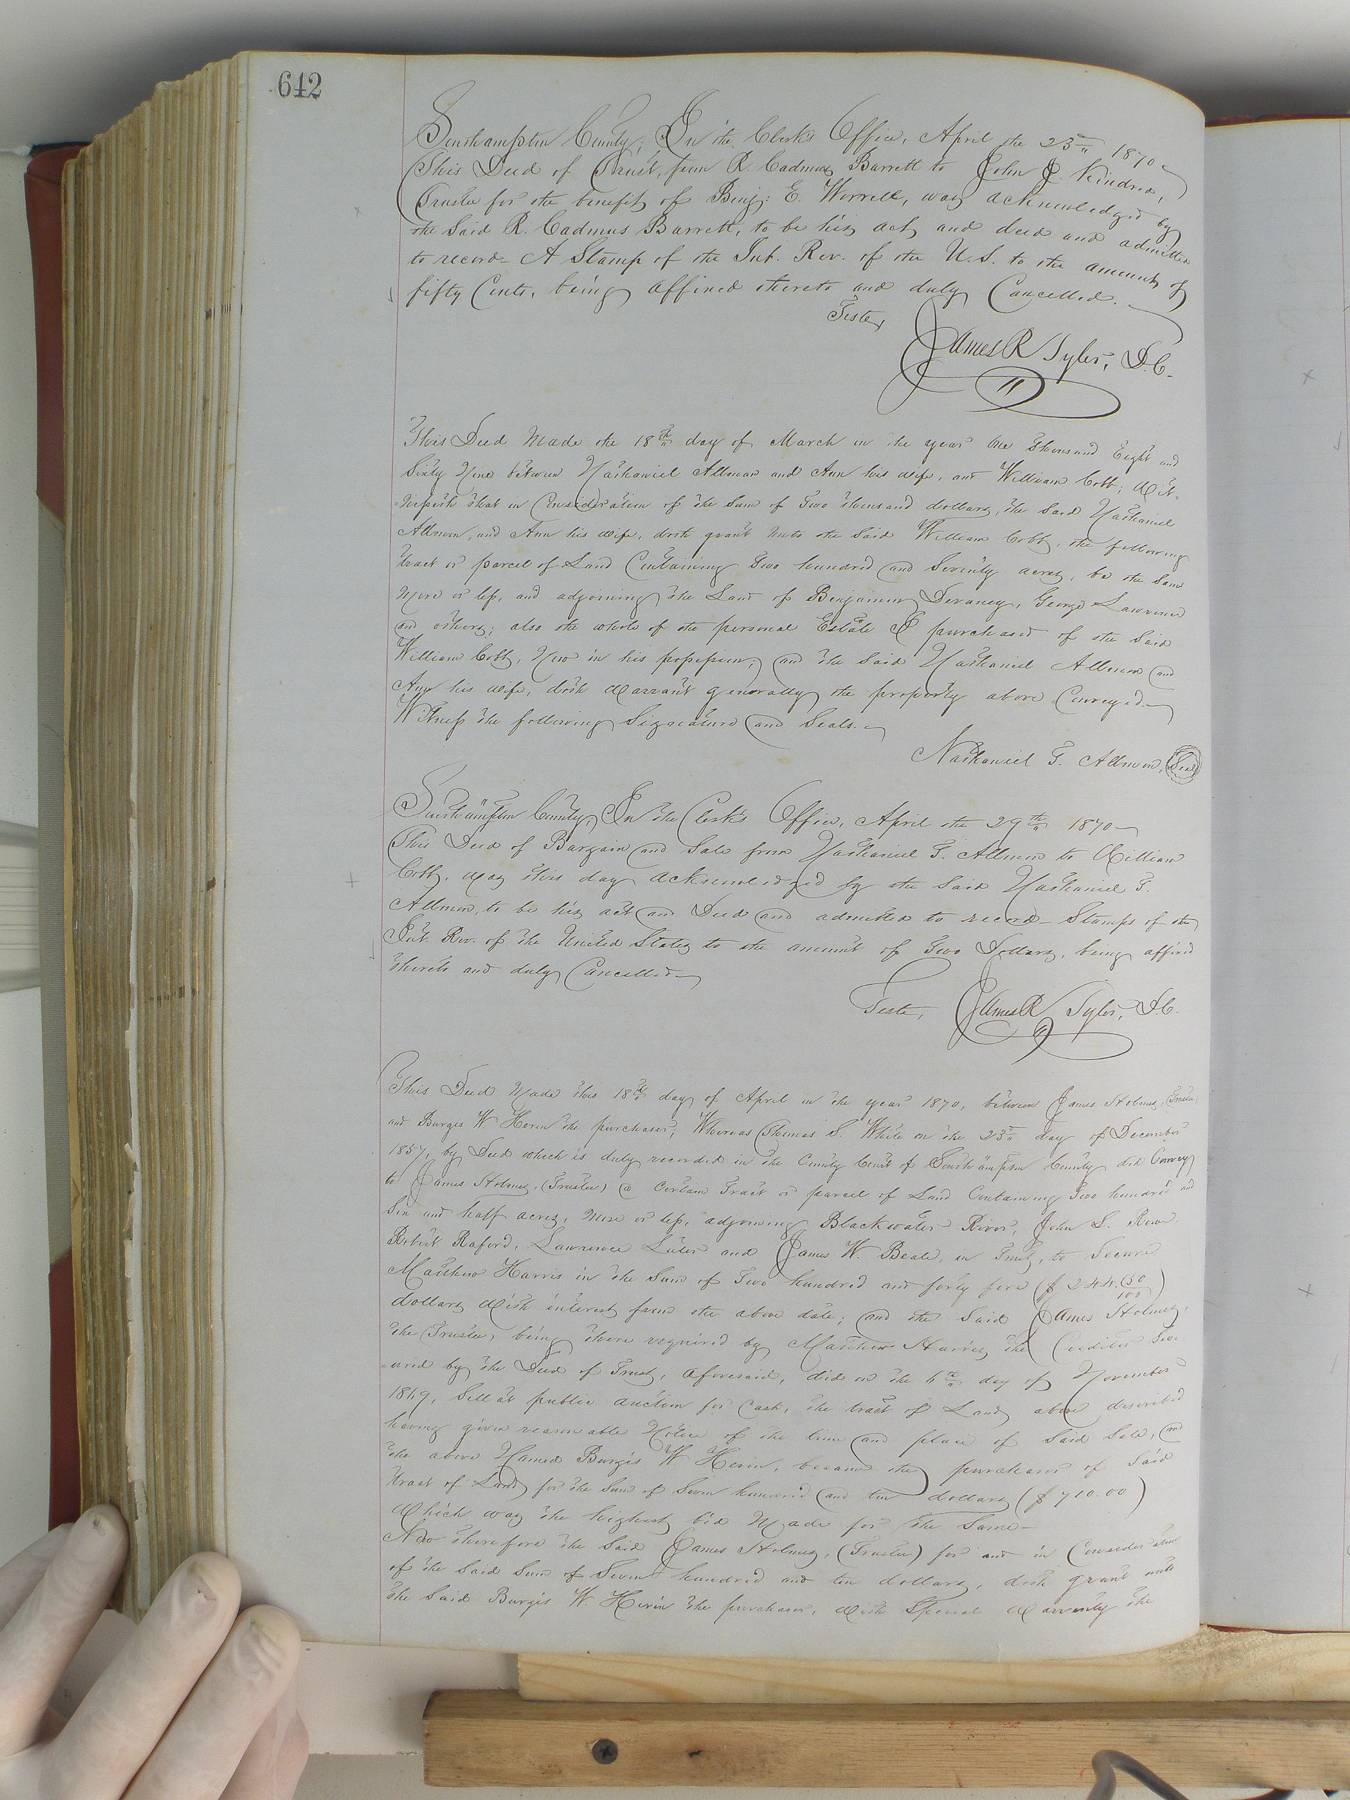 642
Southampton County, In the Clerk's Office, April the 23rd 1870
This Deed of Trust, from R. Cadmus Barrett to John J. Kindred,
Trustee for the benefit of Benj: E. Worrell, was acknowledged by
the Said R. Cadmus Barrett, to be his act and deed and admitted
to record. A Stamp of the Int. Rev. of the U.S. to the amount of
fifty Cents, being affixed thereto and duly Cancelled.
Teste,
James R Tyler, D.C.
This Deed Made the 18th day of March in the year One thousand Eight and
Sixty Nine between Nathaniel Allmon and Ann his wife, and William Cobb; Wit-
-nesseth that in Consideration of the Sum of Two thousand dollars, the Said Nathaniel
Allmon, and Ann his wife, doth grant unto the Said William Cobb, the following
tract or parcel of Land Containing Two hundred and Seventy acres, be the Same
More or less, and adjoining the Land of Benjamin Devaney, George Lawrence
and others; also the whole of the personal Estate I purchased of the Said
William Cobb, Now in his possession; and the Said Nathaniel Allmon and
Ann his wife, doth warrant generally the property above Conveyed.
Witness the following Signature and Seals.
Nathaniel T. Allmon, Seal
Southampton County, In the Clerk's Office, April the 29th 1870
This Deed of Bargain and Sale from Nathaniel T. Allmon to William
Cobb, was this day acknowledged by the Said Nathaniel T.
Allmon, to be his act and Deed and admitted to record. Stamps of the
Int. Rev. of the United States to the amount of Two Dollars, being affixed
thereto and duly Cancelled
Teste, James R Tyler, D.C.
This Deed Made this 18th day of April in the year 1870, between James Holmes, (Trustee)
and Burgis W Herin the purchaser; Whereas Thomas S. White on the 23rd day of December
1857, by Deed which is duly recorded in the County Court of Southampton County did Convey
to James Holmes, (Trustee) a Certain Tract or parcel of Land Containing Two hundred and
Six and half acres, More or less, adjoining Blackwater River, John S. Rowe
Robert Raford, Lawrence Luter and James W. Beale, in Trust, to Secure
Matthew Harris in the Sum of Two hundred and forty five ($ 244.50/100)
dollars with interest from the above date; and the Said James Holmes,
the Trustee, being there required by Matthew Harris, the Creditor Sec-
-ured by the Deed of Trust, aforesaid, did on the day of November
1869, Sell at public auction for Cash, the tract of Land above described
having given reasonable Notice of the time and place of Said Sale, and
the above Named Burgis W Herin, became the purchaser of Said
tract of Land for the Sum of Seven hundred and ten dollars ($ 710.00)
Which was the highest bid Made for the Same
Now therefore the Said James Holmes, (Trustee) for and in Consideration
of the Said Sum of Seven hundred and ten dollars, doth grant unto
the Said Burgis W Herin the purchaser, with Special Warranty the